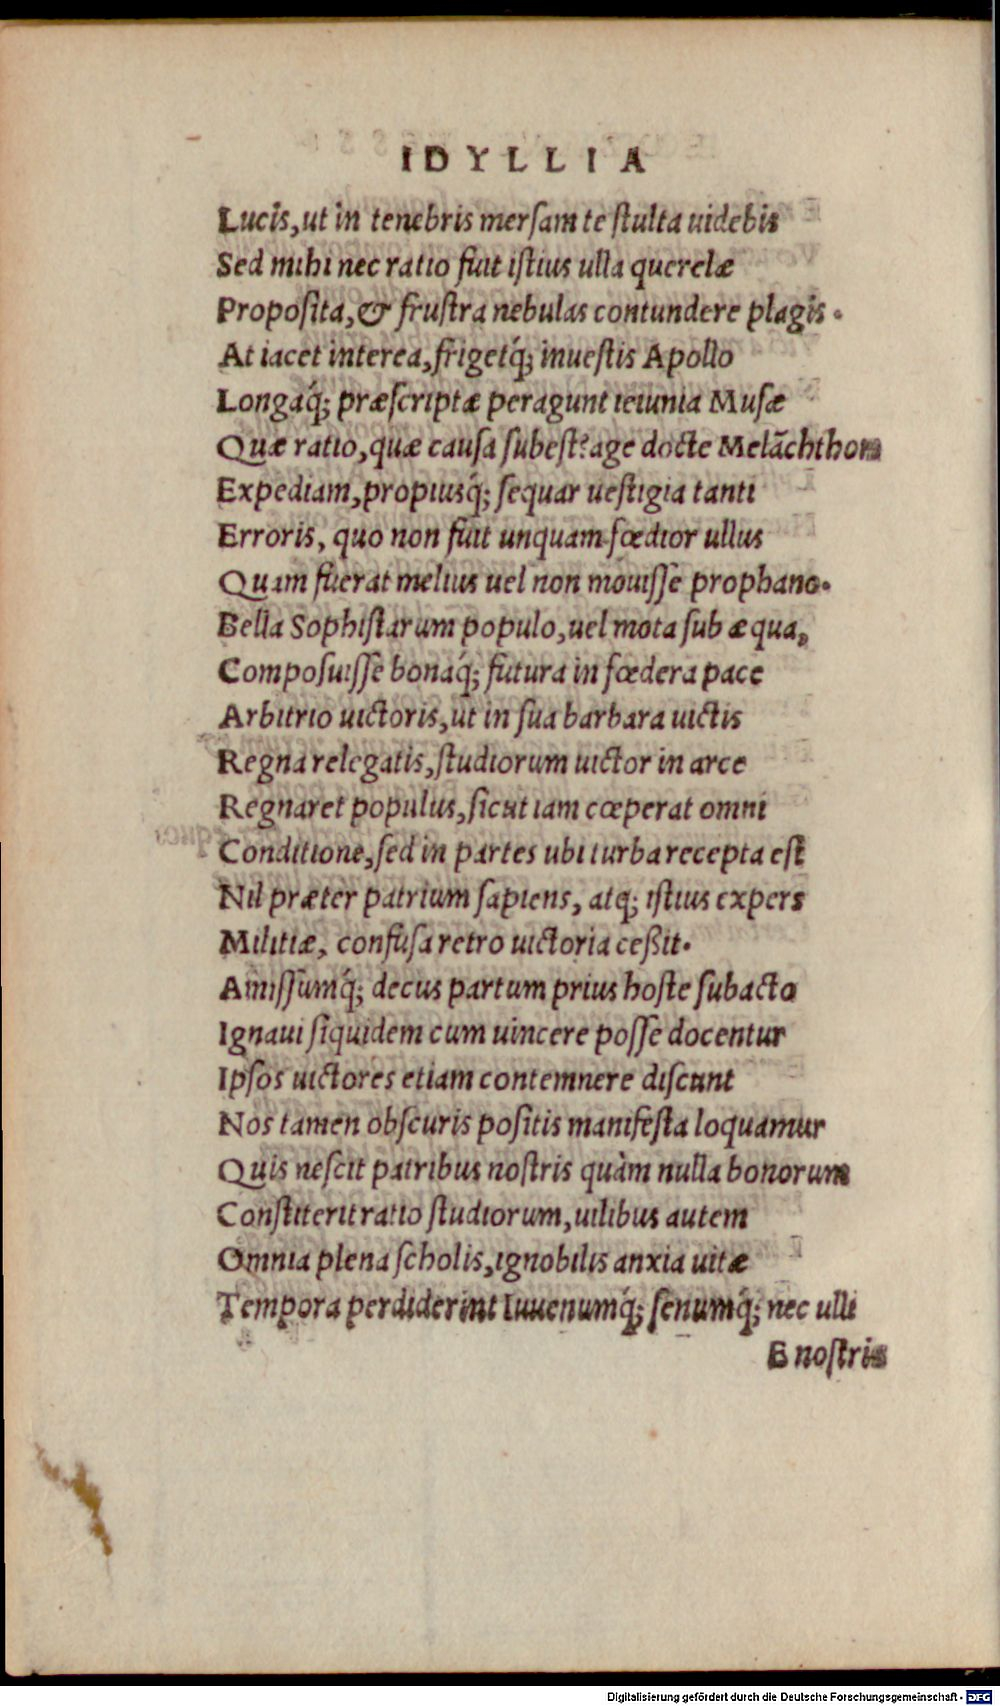 IDYLLIA
Lucis, ut in tenebris mersam te stulta uidebis
Sed mihi nec ratio fuit istius ulla querelæ
Proposita, & frustra nebulas contundere plagis.
At iacet interea, frigetq́; inuestis Apollo
Longaq́; præscriptæ peragunt ieiunia Musæ
Quæ ratio, quæ causa subest? age docte Melãchthon
Expediam, propiusq́; sequar uestigia tanti
Erroris, quo non fuit unquam fœdior ullus
Quam fuerat melius uel non mouisse prophano.
Bella Sophistarum populo, uel mota sub æqua,
Composuisse bonaq́; futura in fœdera pace
Arbitrio uictoris, ut in sua barbara uictis
Regna relegatis, studiorum uictor in arce
Regnaret populus, sicut iam cœperat omni
Conditione, sed in partes ubi turba recepta est
Nil præter patrium sapiens, atq; istius expers
Militiæ, confusa retro uictoria ceßit.
Amissumq́; decus partum prius hoste subacto
Ignaui siquidem cum uincere posse docentur
Ipsos uictores etiam contemnere discunt
Nos tamen obscuris positis manifesta loquamur
Quis nescit patribus nostris quàm nulla bonorum
Constiterit ratio studiorum, uilibus autem
Omnia plena scholis, ignobilis anxia uitæ
Tempora perdiderint Iuuenumq́; senumq́; nec ulli
E nostris
Digitalisierung gefördert durch die Deutsche Forschungsgemeinschaft - DFG